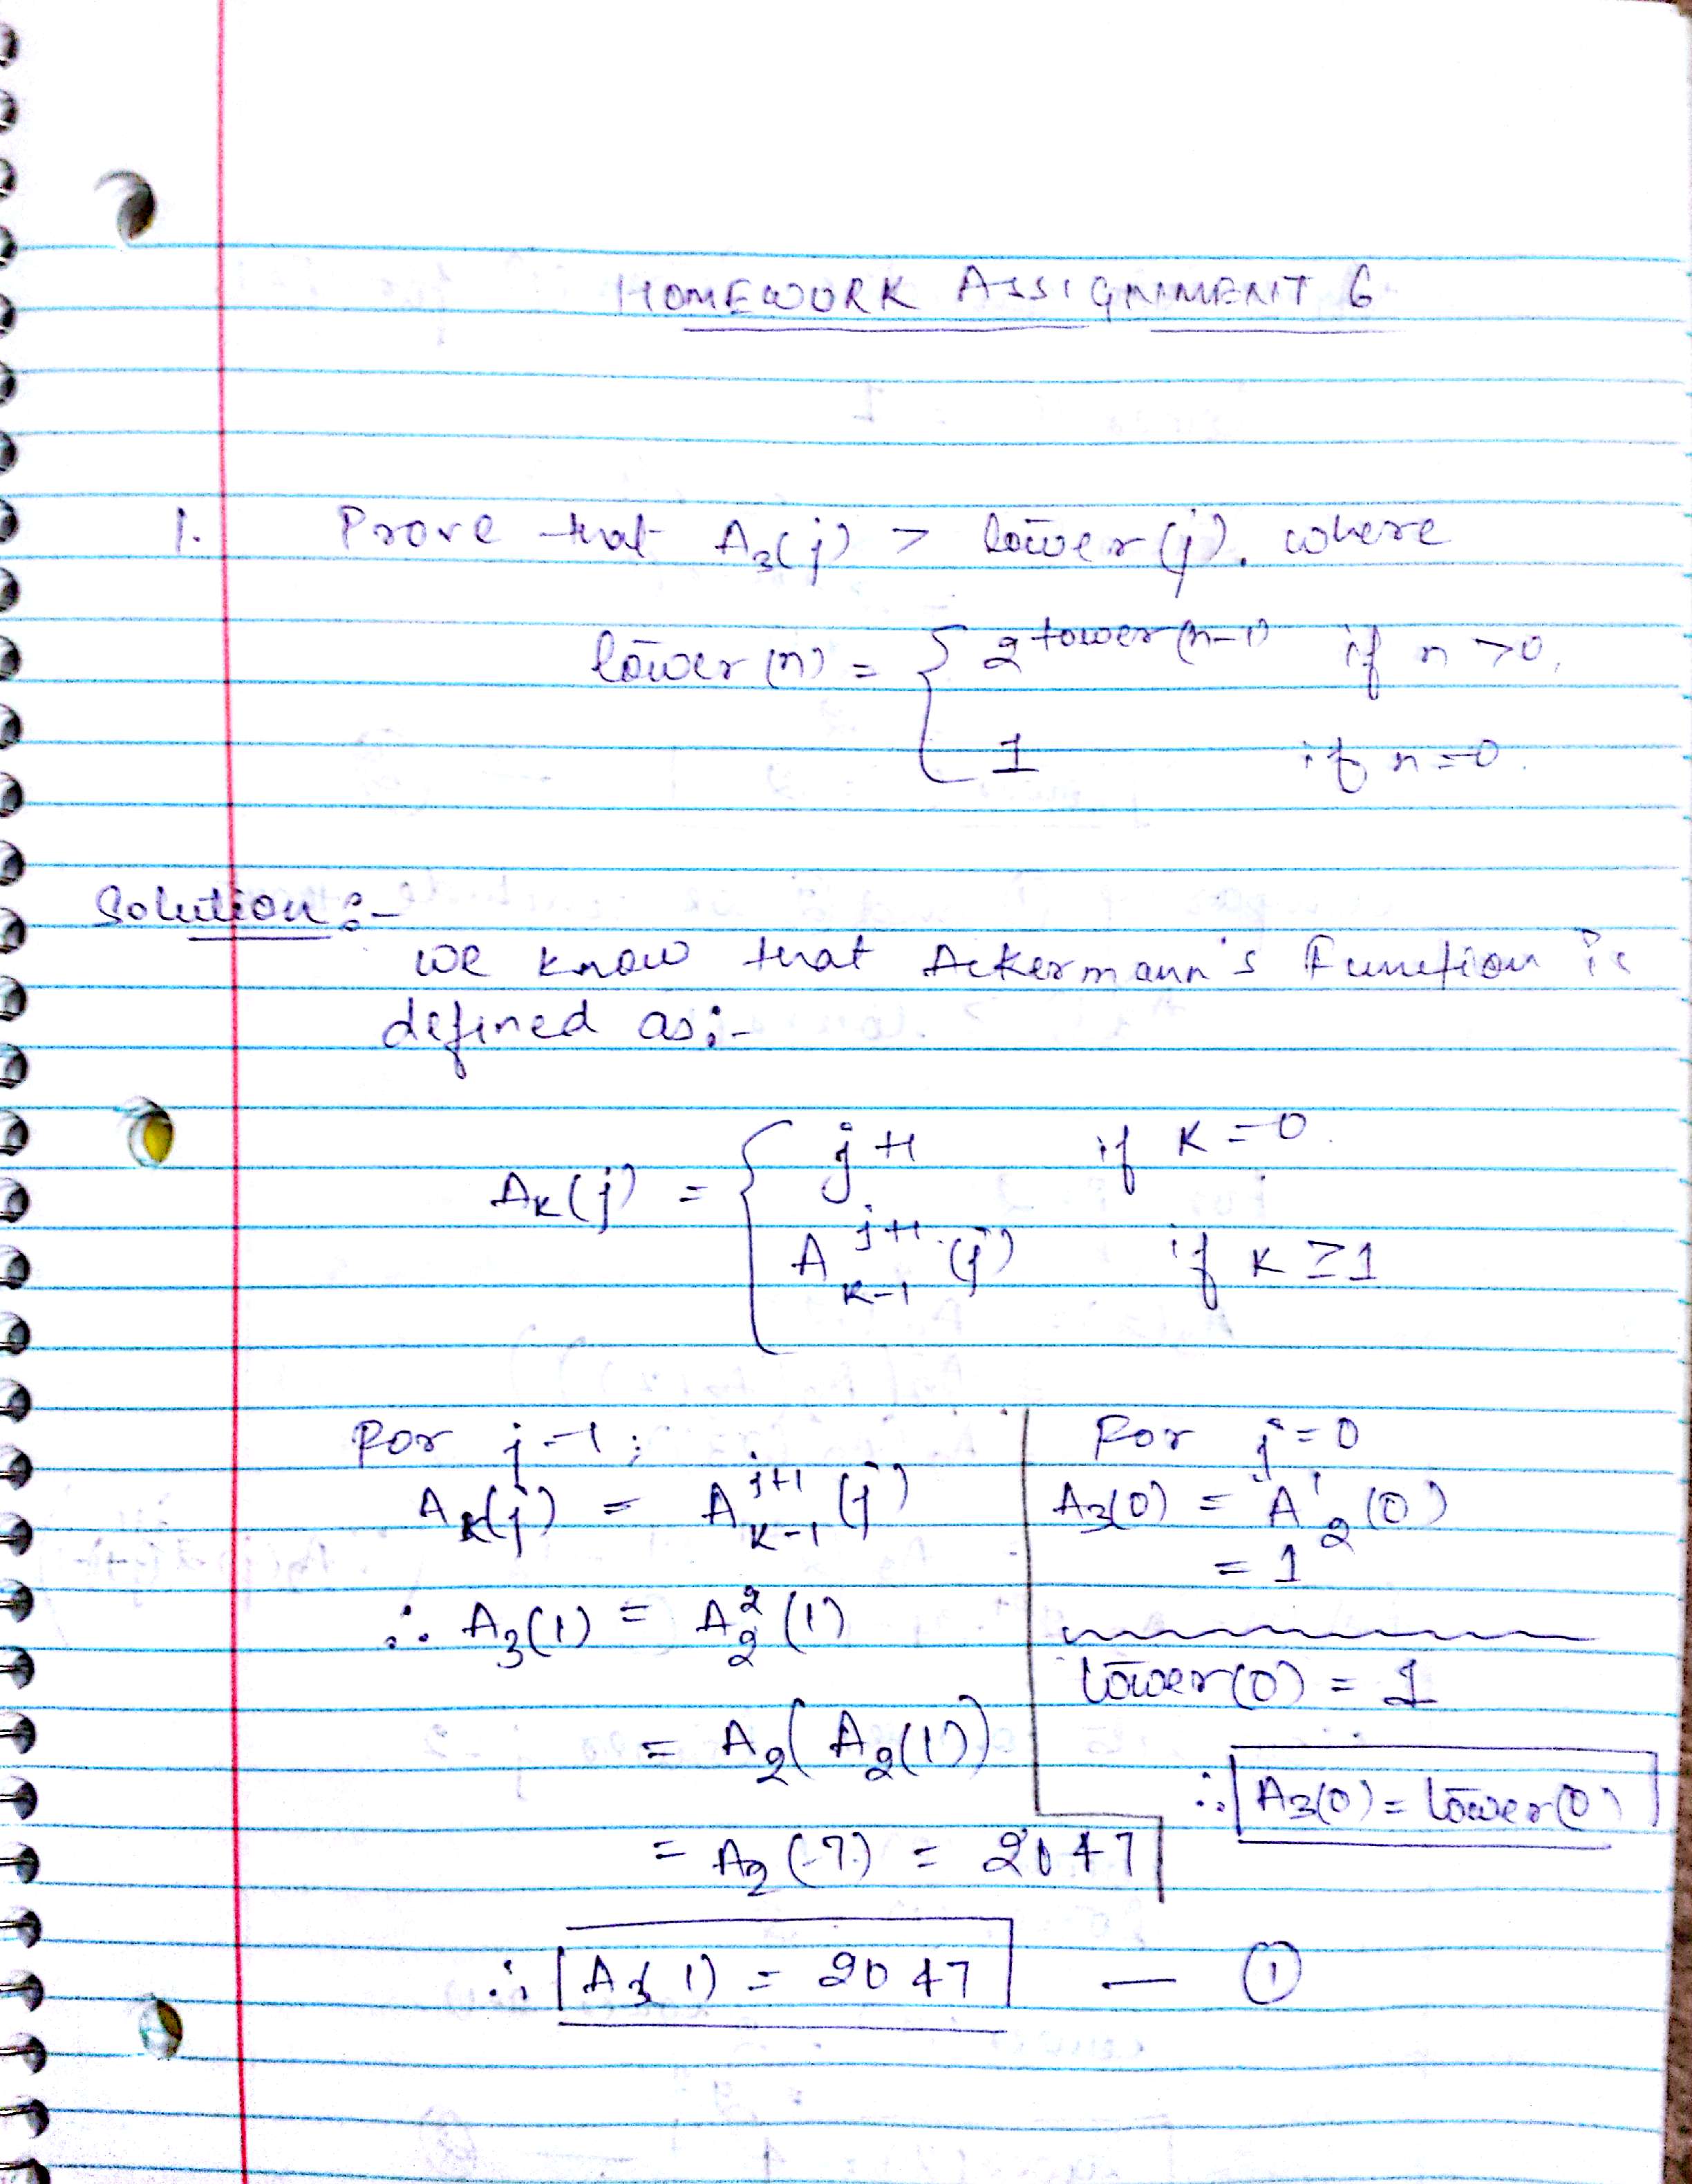 HOMEWORK ASSIGNMENT 6
1. Prove that A₃(j) > tower(j). where
tower(n) = { 2^tower(n-1) if n >0,
1 if n=0.
Solution :-
we know that Ackermann's Function is
defined as:-
Aₖ(j) = { j+1 if K=0.
A^{j+1}_{K-1}(j) if K ≥ 1
For j=1;
Aₖ(j) = A^{j+1}_{K-1}(j)
∴ A₃(1) = A₂²(1)
= A₂(A₂(1))
= A₂(7) = 2047
∴ A₃(1) = 2047 — ①
For j=0
A₃(0) = A¹₂(0)
= 1
tower(0) = 1
∴ A₃(0) = tower(0)